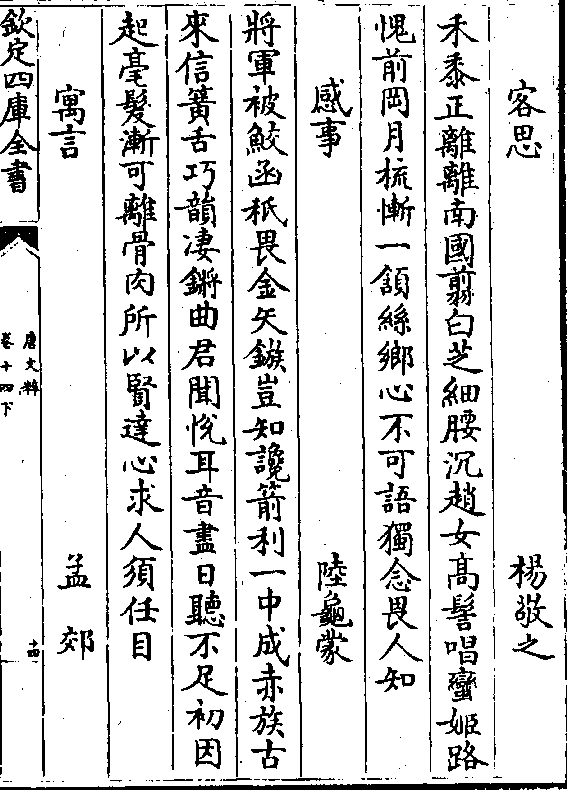 客思 楊敬之
禾黍正離離南國翦白芝細腰沉趙女高髻唱蠻姬路
愧前岡月梳慚一頷絲鄉心不可語獨念畏人知
感事 陸龜蒙
將軍被鮫函秪畏金矢鏃豈知讒箭利一中成赤族古
來信簧舌巧韻凄鏘曲君聞悅耳音盡日聽不足初因
起毫髮漸可離骨肉所以賢達心求人須任目
寓言 孟郊
欽定四庫全書
唐文粹
卷十四下
十四